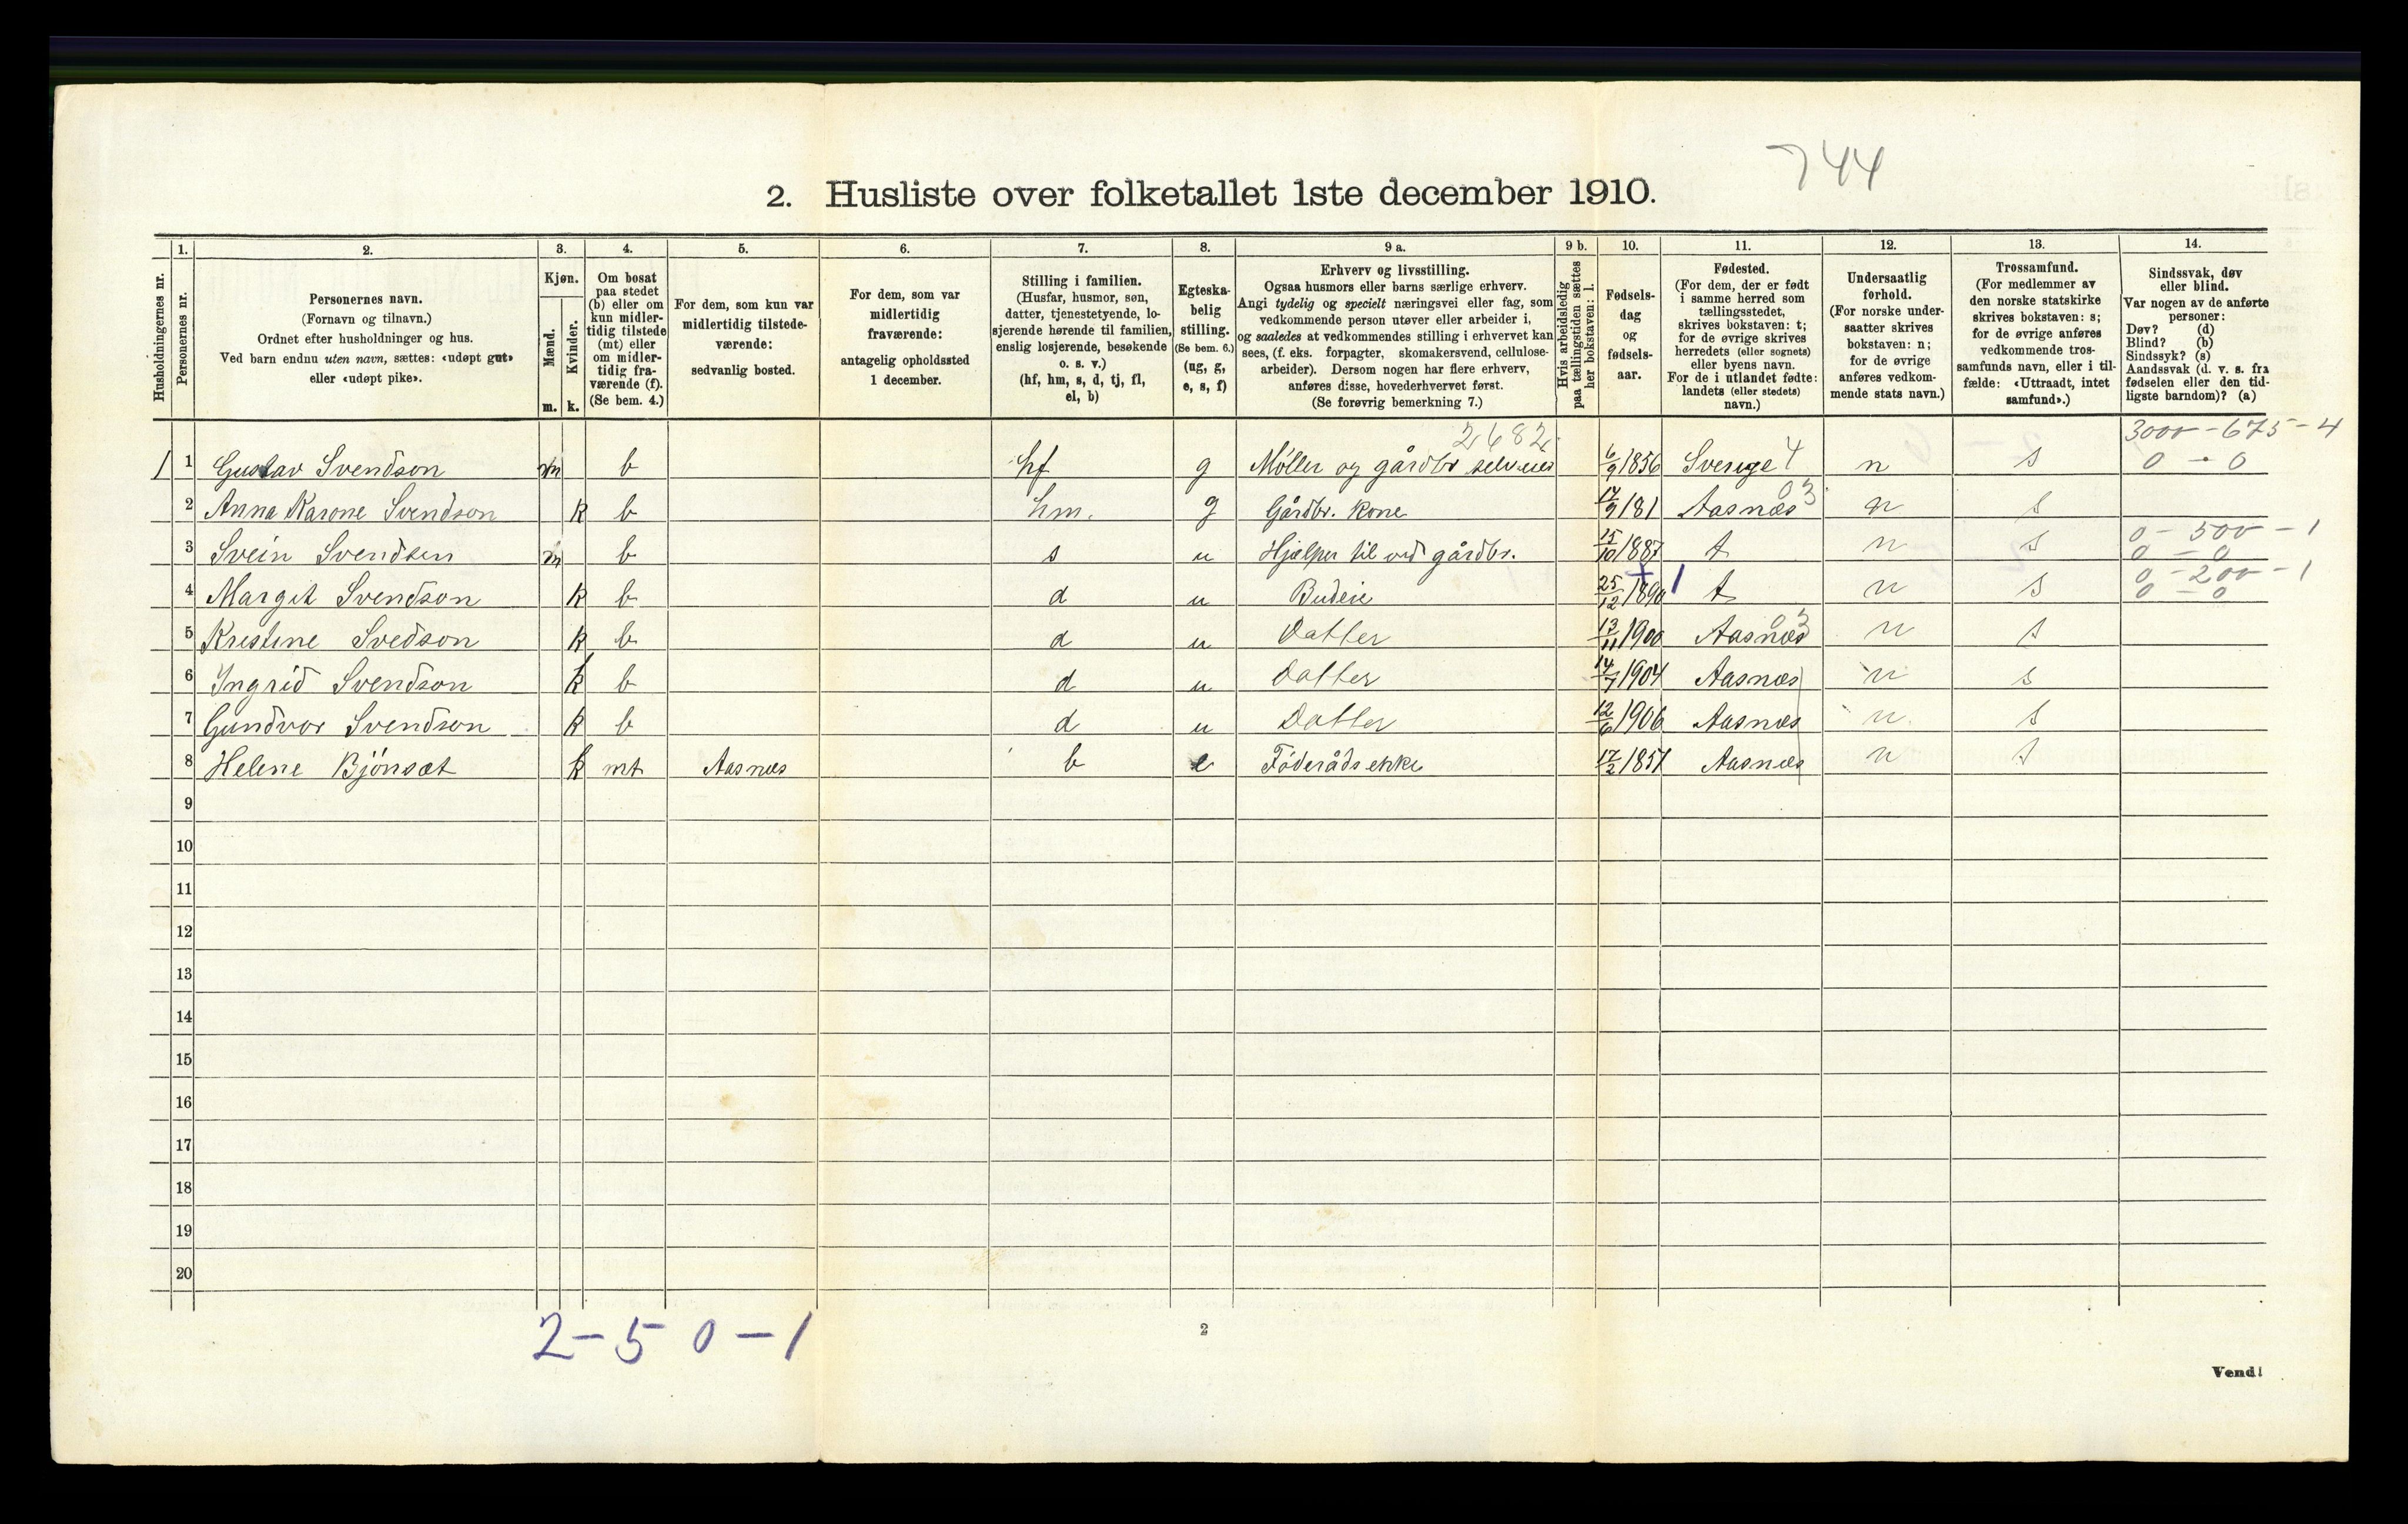 744
2. Husliste over folketallet 1ste december 1910.
Husholdningernes nr.
1.
Personernes nr.
2.
Personernes navn.
(Fornavn og tilnavn.)
Ordnet efter husholdninger og hus.
Ved barn endnu uten navn, sættes: «udøpt gut»
eller «udøpt pike».
3.
Kjøn.
Mænd.
Kvinder.
m. k.
4.
Om bosat
paa stedet
(b) eller om
kun midler-
tidig tilstede
(mt) eller
om midler-
tidig fra-
værende (f).
(Se bem. 4.)
5.
For dem, som kun var
midlertidig tilstede-
værende:
sedvanlig bosted.
6.
For dem, som var
midlertidig
fraværende:
antagelig opholdssted
1 december.
7.
Stilling i familien.
(Husfar, husmor, søn,
datter, tjenestetyende, lo-
sjerende hørende til familien,
enslig losjerende, besøkende
o. s. v.)
(hf, hm, s, d, tj, fl,
el, b)
8.
Egteska-
belig
stilling.
(Se bem. 6.)
(ug, g,
e, s, f)
9 a.
Erhverv og livsstilling.
Ogsaa husmors eller barns særlige erhverv.
Angi tydelig og specielt næringsvei eller fag, som
vedkommende person utøver eller arbeider i,
og saaledes at vedkommendes stilling i erhvervet kan
sees, (f. eks. forpagter, skomakersvend, cellulose-
arbeider). Dersom nogen har flere erhverv,
anføres disse, hovederhvervet først.
(Se forøvrig bemerkning 7.)
9 b.
Hvis arbeidsledig
paa tællingstiden sættes
her bokstaven: l.
10.
Fødsels-
dag
og
fødsels-
aar.
11.
Fødested.
(For dem, der er født
i samme herred som
tællingsstedet,
skrives bokstaven: t;
for de øvrige skrives
herredets (eller sognets)
eller byens navn.
For de i utlandet fødte:
landets (eller stedets)
navn.)
12.
Undersaatlig
forhold.
(For norske under-
saatter skrives
bokstaven: n;
for de øvrige
anføres vedkom-
mende stats navn.)
13.
Trossamfund.
(For medlemmer av
den norske statskirke
skrives bokstaven: s;
for de øvrige anføres
vedkommende tros-
samfunds navn, eller i til-
fælde: «Uttraadt, intet
samfund».)
14.
Sindssvak, døv
eller blind.
Var nogen av de anførte
personer:
Døv? (d)
Blind? (b)
Sindssyk? (s)
Aandssvak (d. v. s. fra
fødselen eller den tid-
ligste barndom)? (a)
2682 3000 - 675 - 4
1 1 Gustav Svendson m b hf g Møller og gårdbr selveier 6/9 1856 Sverige 4 n s 0 - 0
2 Anna Karone Svendson k b hm. g Gårdbr. kone 17/9 181 Aasnæs 03 n s
3 Svein Svendsen m b s u Hjælper til ved gårdbr. 15/10 1887 t n s 0 - 500 - 1
0 - 0
4 Margit Svendson k b d u Budeie 25/12 1890 + 1 t n s 0 - 200 - 1
0 - 0
5 Kristine Svedson k b d u Datter 13/11 1900 Aasnæs 03 n s
6 Ingrid Svendson k b d u Datter 14/7 1904 Aasnæs n s
7 Gundvor Svendson k b d u Datter 12/6 1906 Aasnæs n s
8 Helene Bjönsæt k mt Aasnæs b e Föderåds enke 17/2 1851 Aasnæs n s
9
10
11
12
13
14
15
16
17
18
19
20
2 - 5 0 - 1
2
Vend!